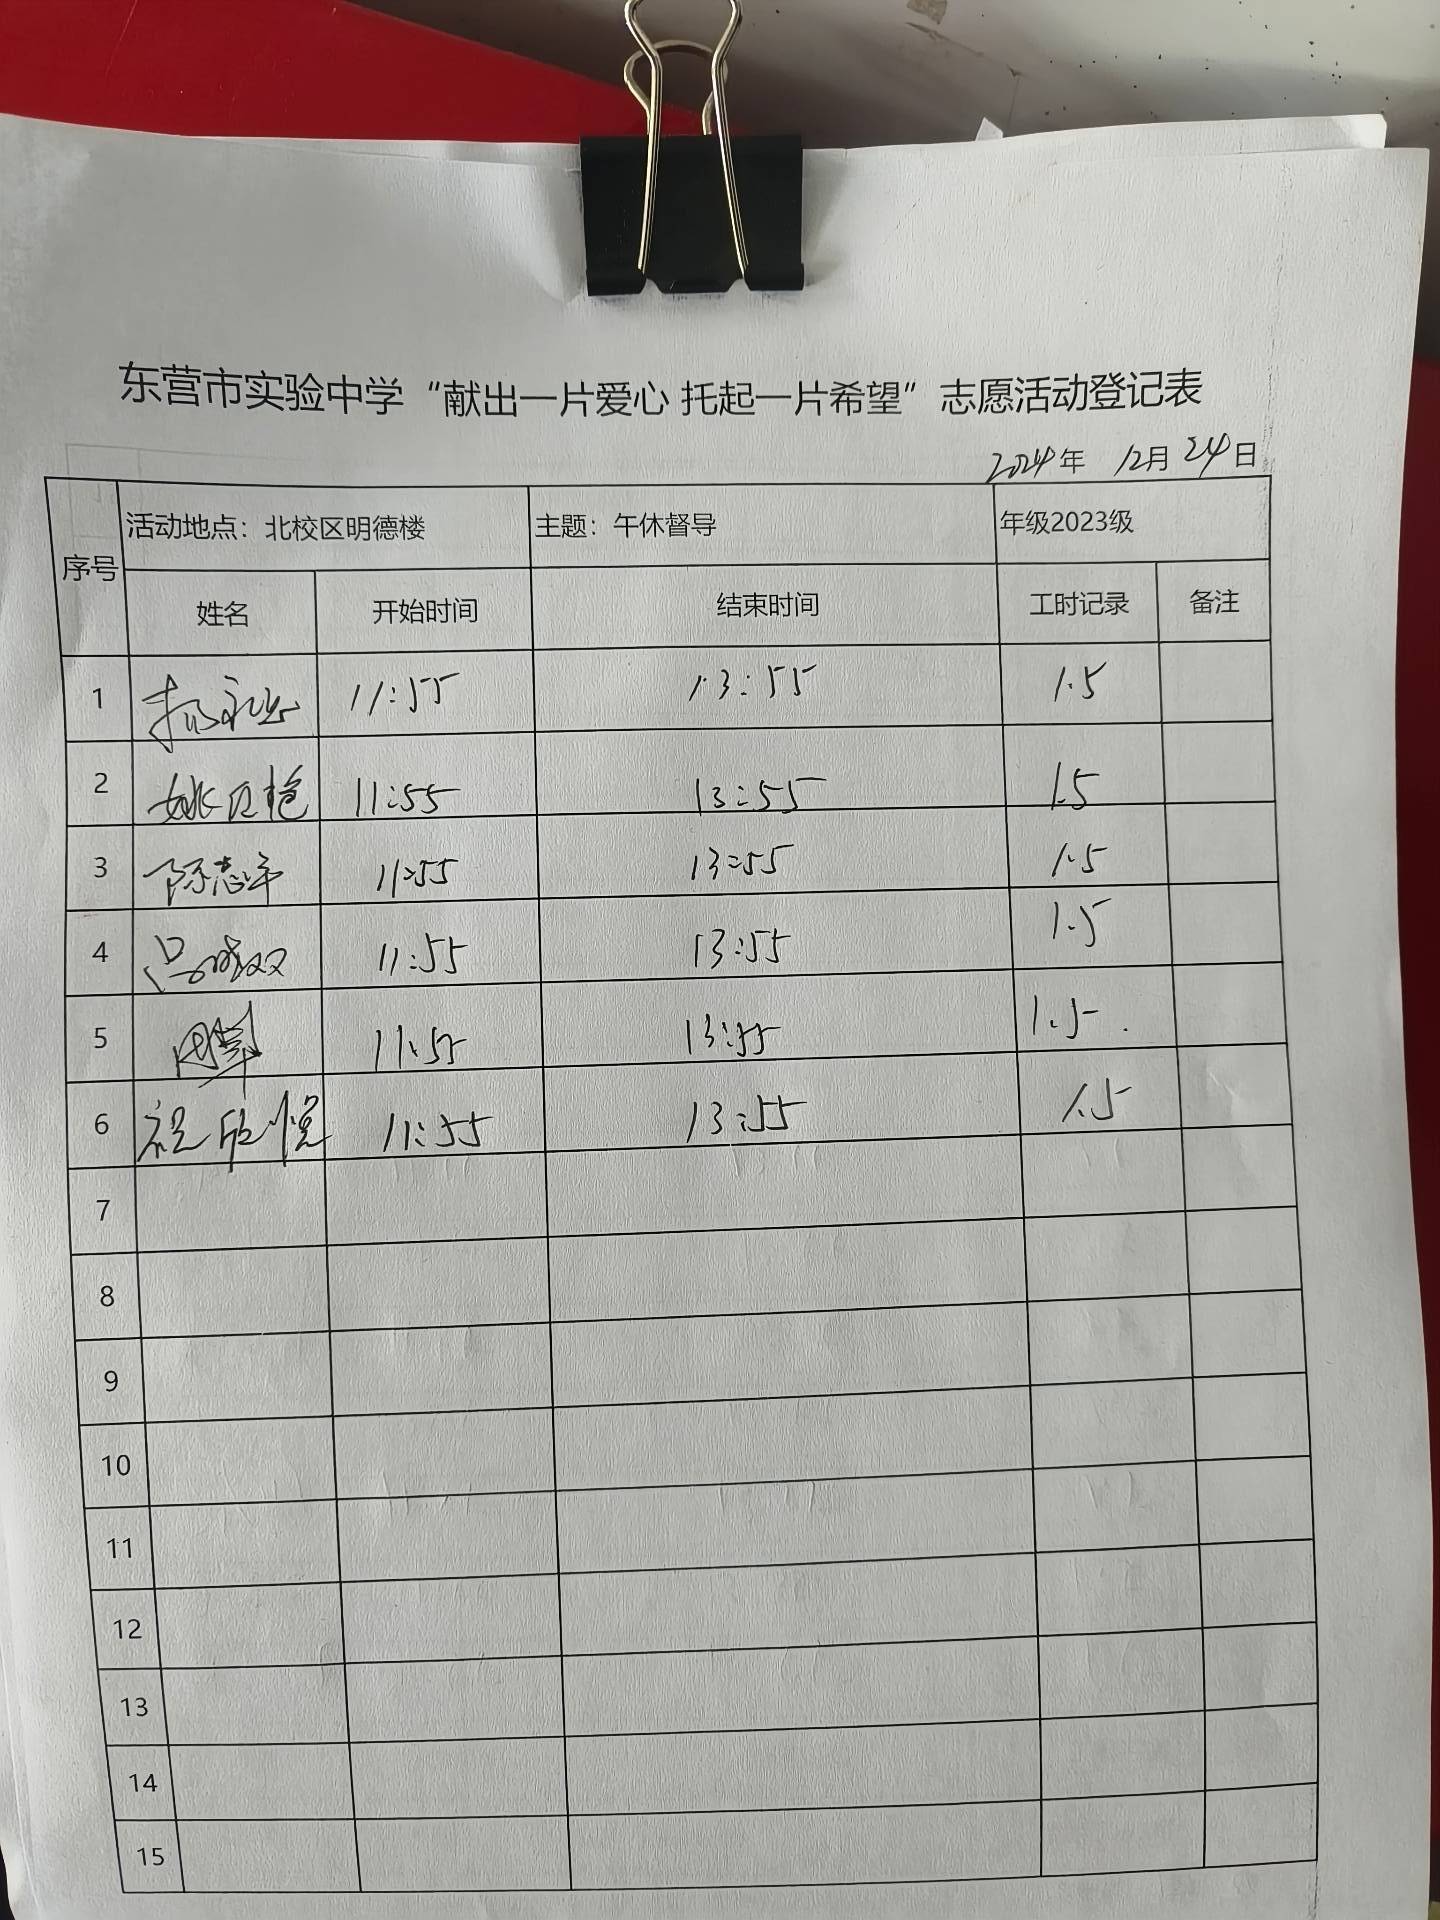 东营市实验中学“献出一片爱心 托起一片希望”志愿活动登记表
2024年 12月 24日
序号 活动地点：北校区明德楼 主题：午休督导 年级2023级
姓名 开始时间 结束时间 工时记录 备注
1 11:55 13:55 1.5
2 姚 11:55 13:55 1.5
3 陈志 11:55 13:55 1.5
4 吕 双 11:55 13:55 1.5
5 11:55 13:55 1.5
6 祝欣悦 11:55 13:55 1.5
7
8
9
10
11
12
13
14
15